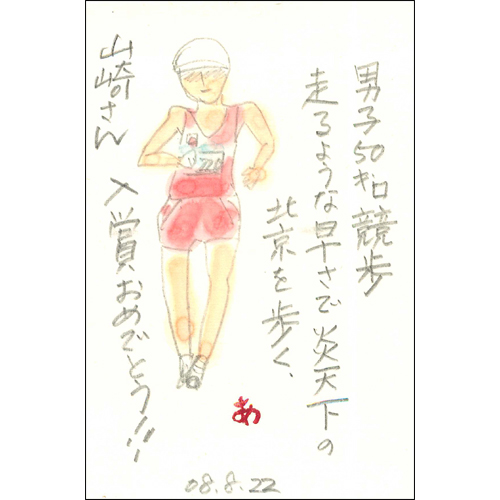 男子50キロ競歩
走るような早さで炎天下の
北京を歩く、
山崎さん 入賞おめでとう!!!
あ
08.8.22